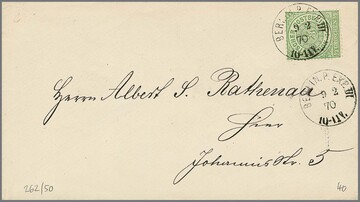 BERLIN. P. EXP. III
9 2
70
10-11V.
BERLIN. P. EXP. III
9 2
70
10-11V.
Herrn Albert S. Rathenau
Hier
Johannisstr. 5
262/50
40